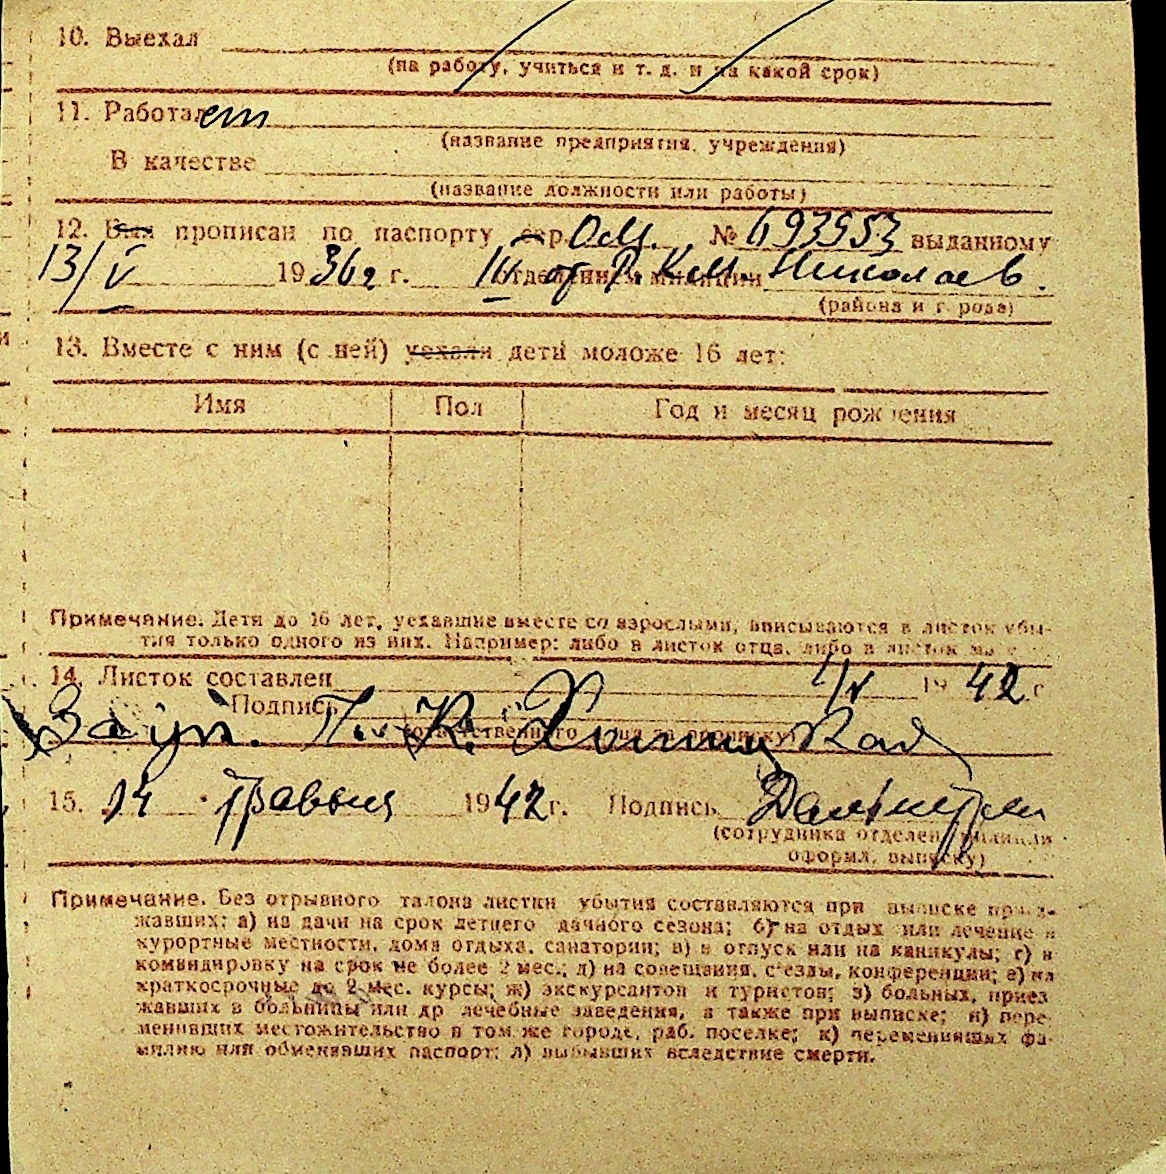 10. Выехал
(на работу, учиться и т. д. и на какой срок)
11. Работает
(название предприятия, учреждения)
В качестве
(название должности или работы)
12. Был прописан по паспорту сер. ОМ. № 693553 выданному
13/V 1936 г. г. III отделением милиции Николаев.
(района и города)
13. Вместе с ним (с ней) уехали дети моложе 16 лет:
Имя Пол Год и месяц рождения
Примечание. Дети до 16 лет, уехавшие вместе со взрослыми, вписываются в листок убы-
тия только одного из них. Например: либо в листок отца, либо в листок
14. Листок составлен 1/V 1942 г
Подпись
(ответственного лица за прописку)
15. 14 травня 1942 г. Подпись
(сотрудника отделен. милиции
оформл. выписку)
Примечание. Без отрывного талона листки убытия составляются при выписке приез-
жавших: а) на дачи на срок летнего дачного сезона; б) на отдых или лечение в
курортные местности, дома отдыха, санатории; в) в отпуск или на каникулы; г) в
командировку на срок не более 2 мес.; д) на совещания, съезды, конференции; е) на
краткосрочные до 2 мес. курсы; ж) экскурсантов и туристов; з) больных, приез
жавших в больницы или др лечебные заведения, а также при выписке; и) пере-
менивших местожительство в том же городе, раб. поселке; к) переменивших фа-
милию или обменявших паспорт; л) выбывших вследствие смерти.